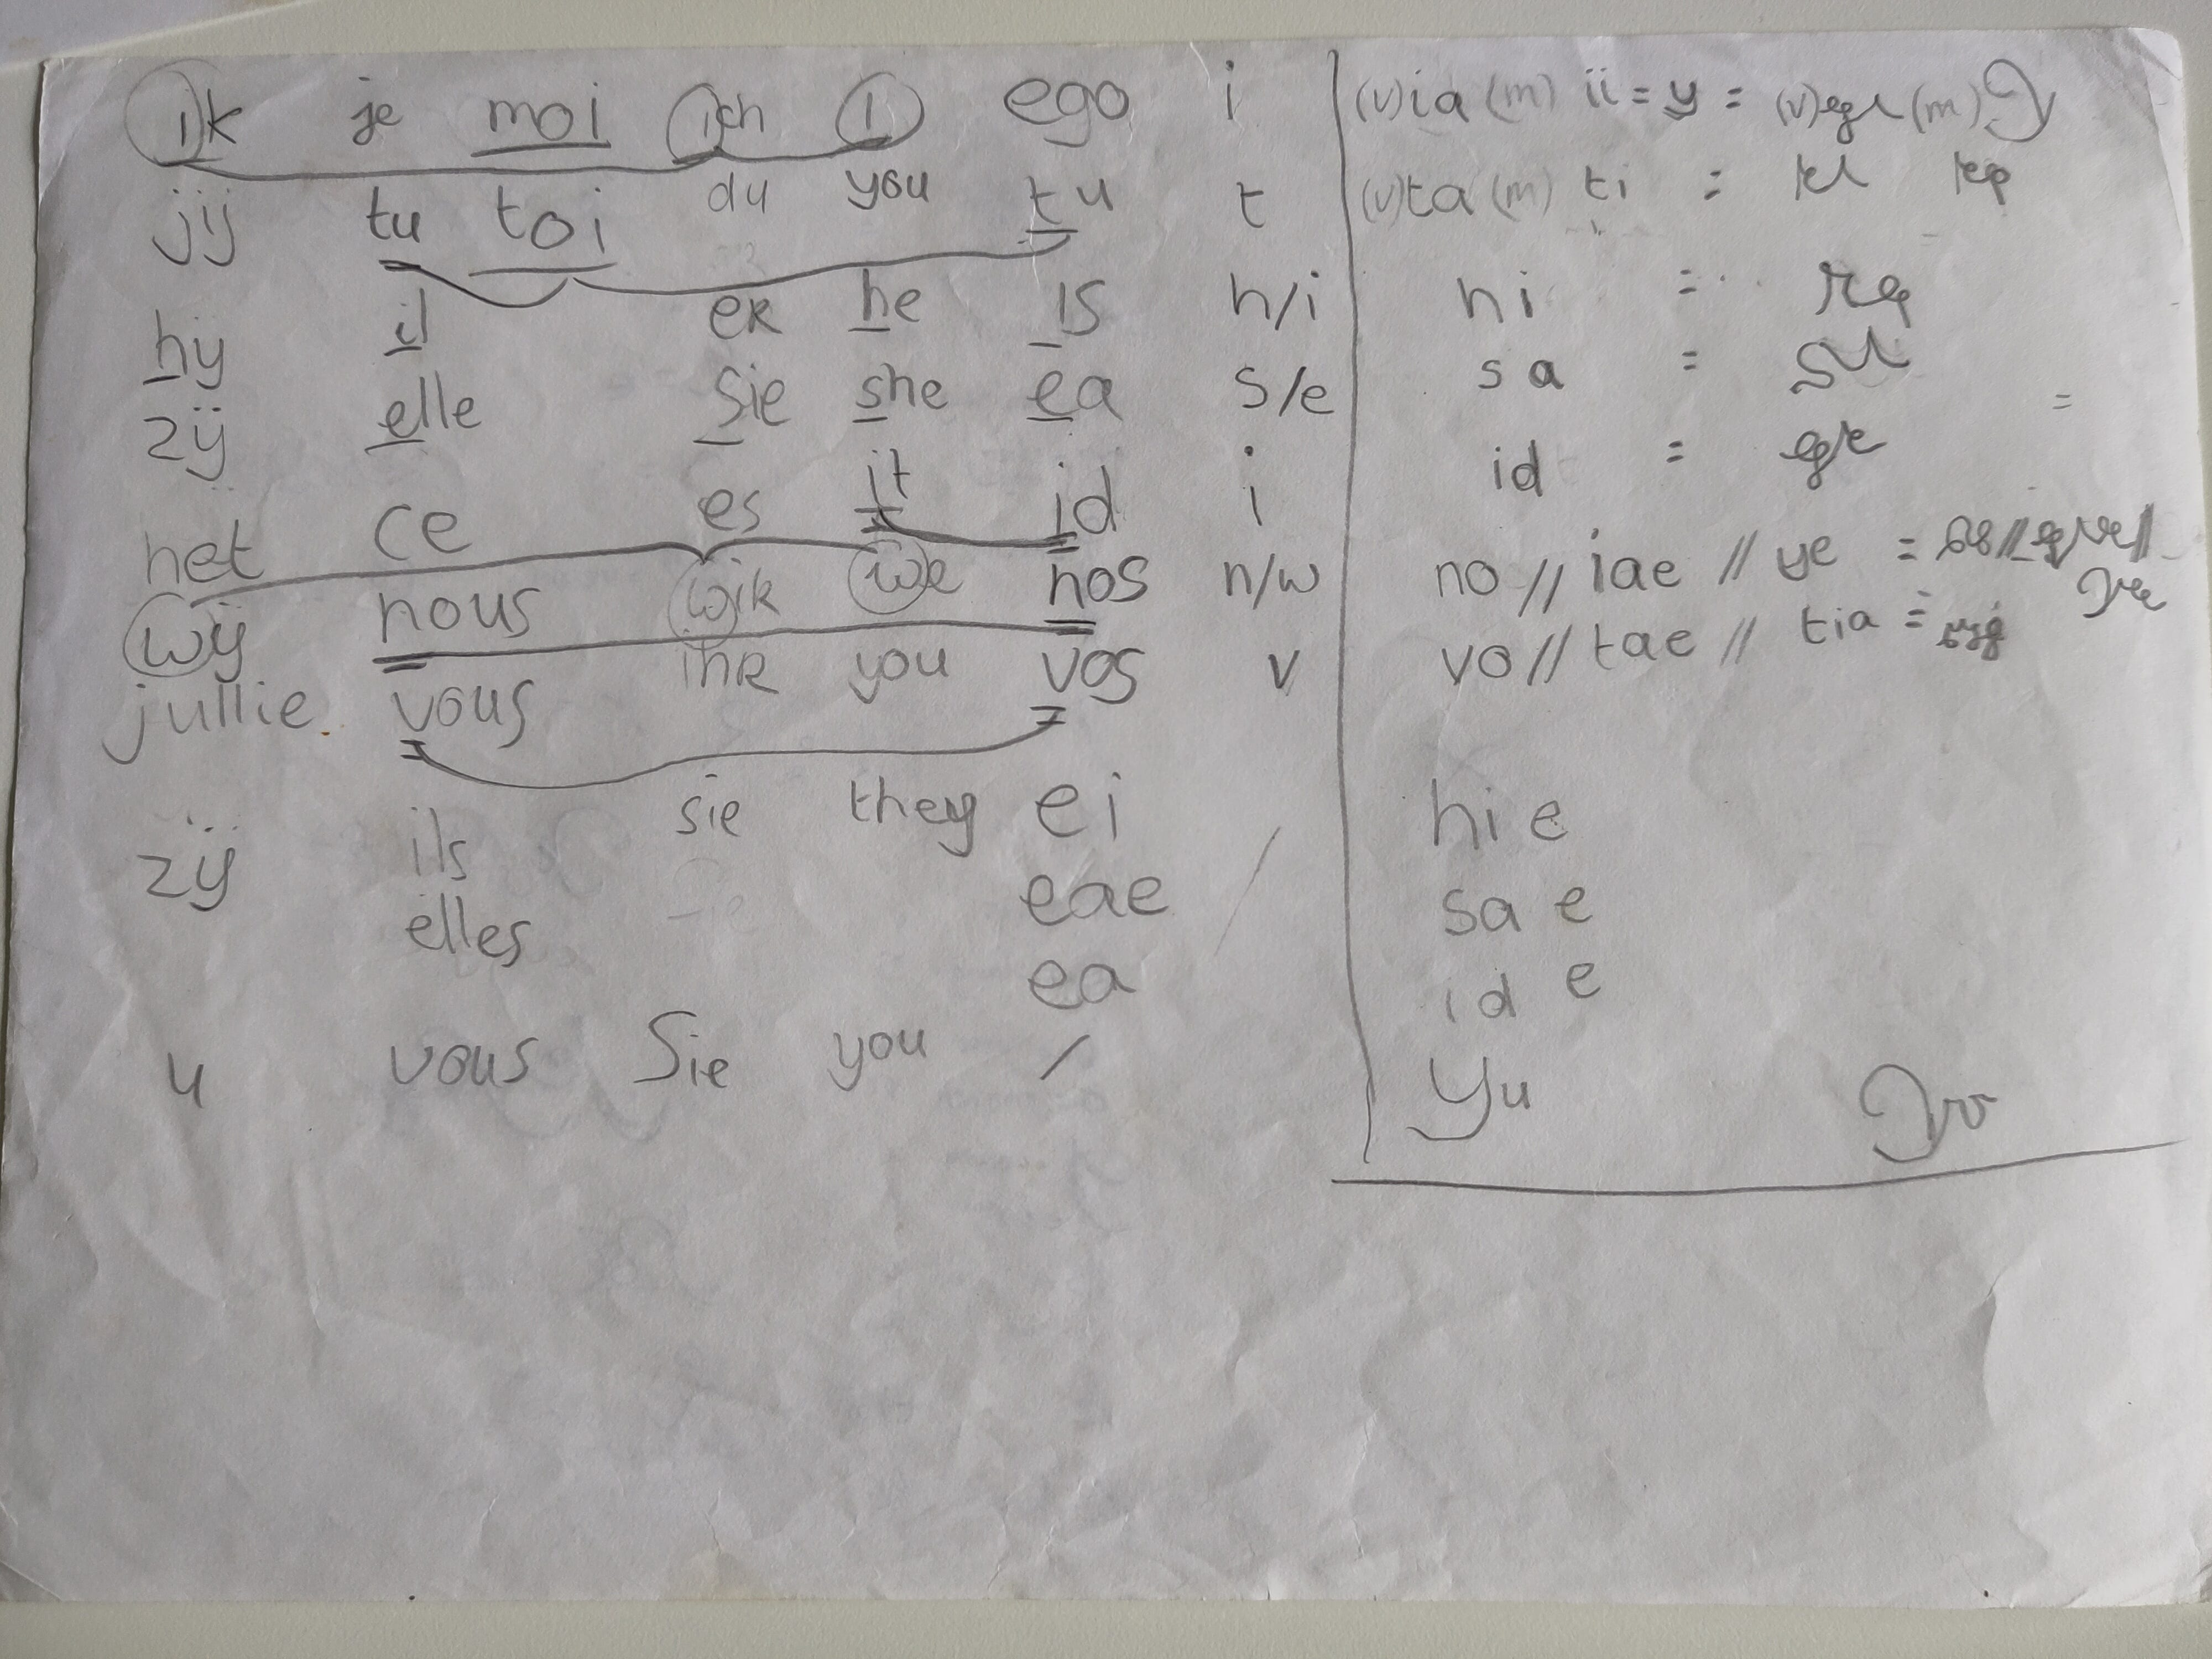 ik je moi ich I ego i (v) ia (m) ii = y = (v) (m)
jij tu toi du you tu t (v) ta (m) ti =
hij il er he is h/i hi =
zij elle sie she ea s/e sa = =
het ce es it id i id =
wij nous wir we nos n/w no // iae // ye =
jullie vous ihr you vos v vo // tae // tia =
zij ils sie they ei / hie
elles eae sae
ea ide
u vous Sie you / Yu